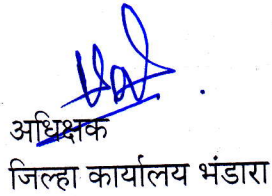 अधिक्षक
जिल्हा कार्यालय भंडारा